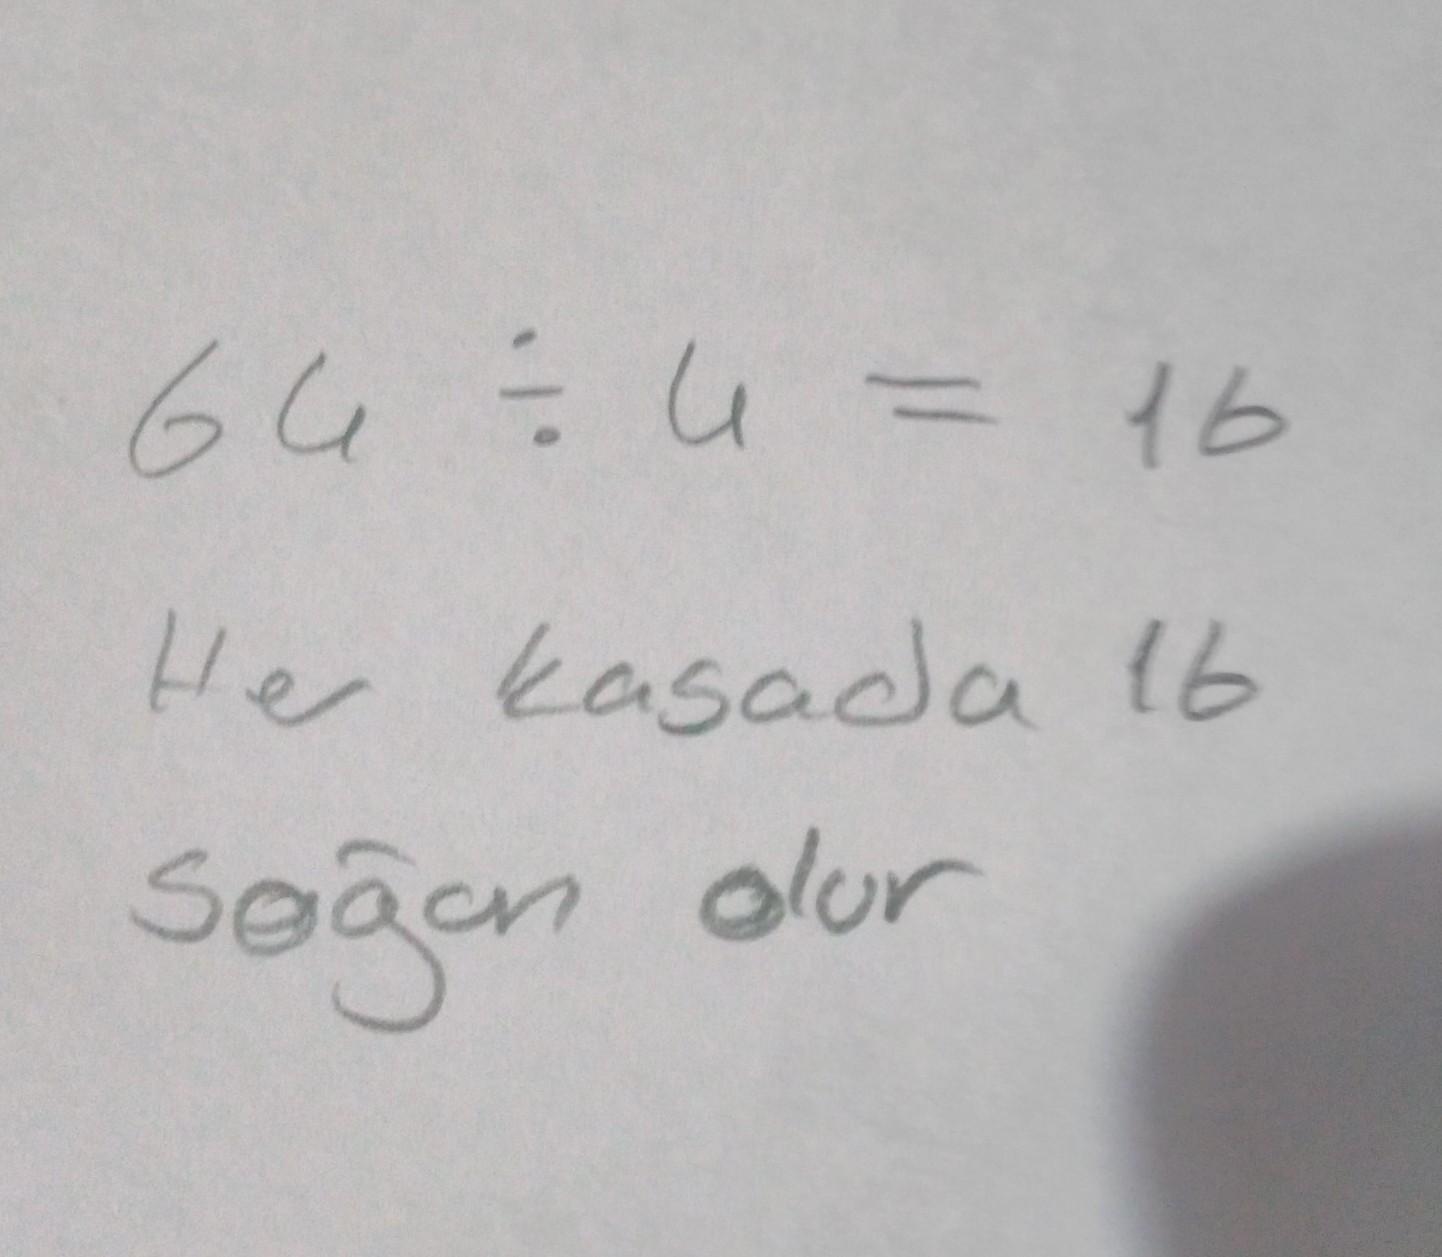 64 ÷ 4 = 16
Her kasada 16
soğan olur